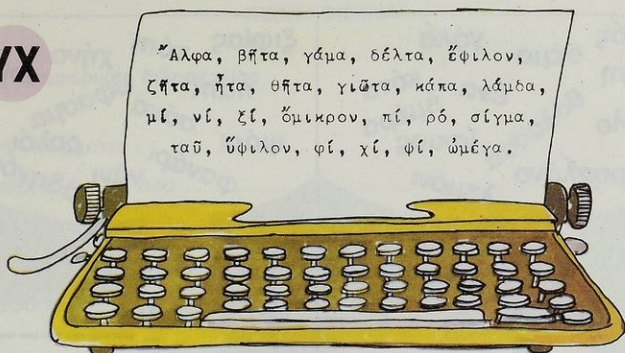 ΥΧ
Ἄλφα, βῆτα, γάμα, δέλτα, ἔψιλον,
ζῆτα, ἦτα, θῆτα, γιῶτα, κάπα, λάμδα,
μί, νί, ξί, ὄμικρον, πί, ρό, σίγμα,
ταῦ, ὕψιλον, φί, χί, ψί, ὠμέγα.